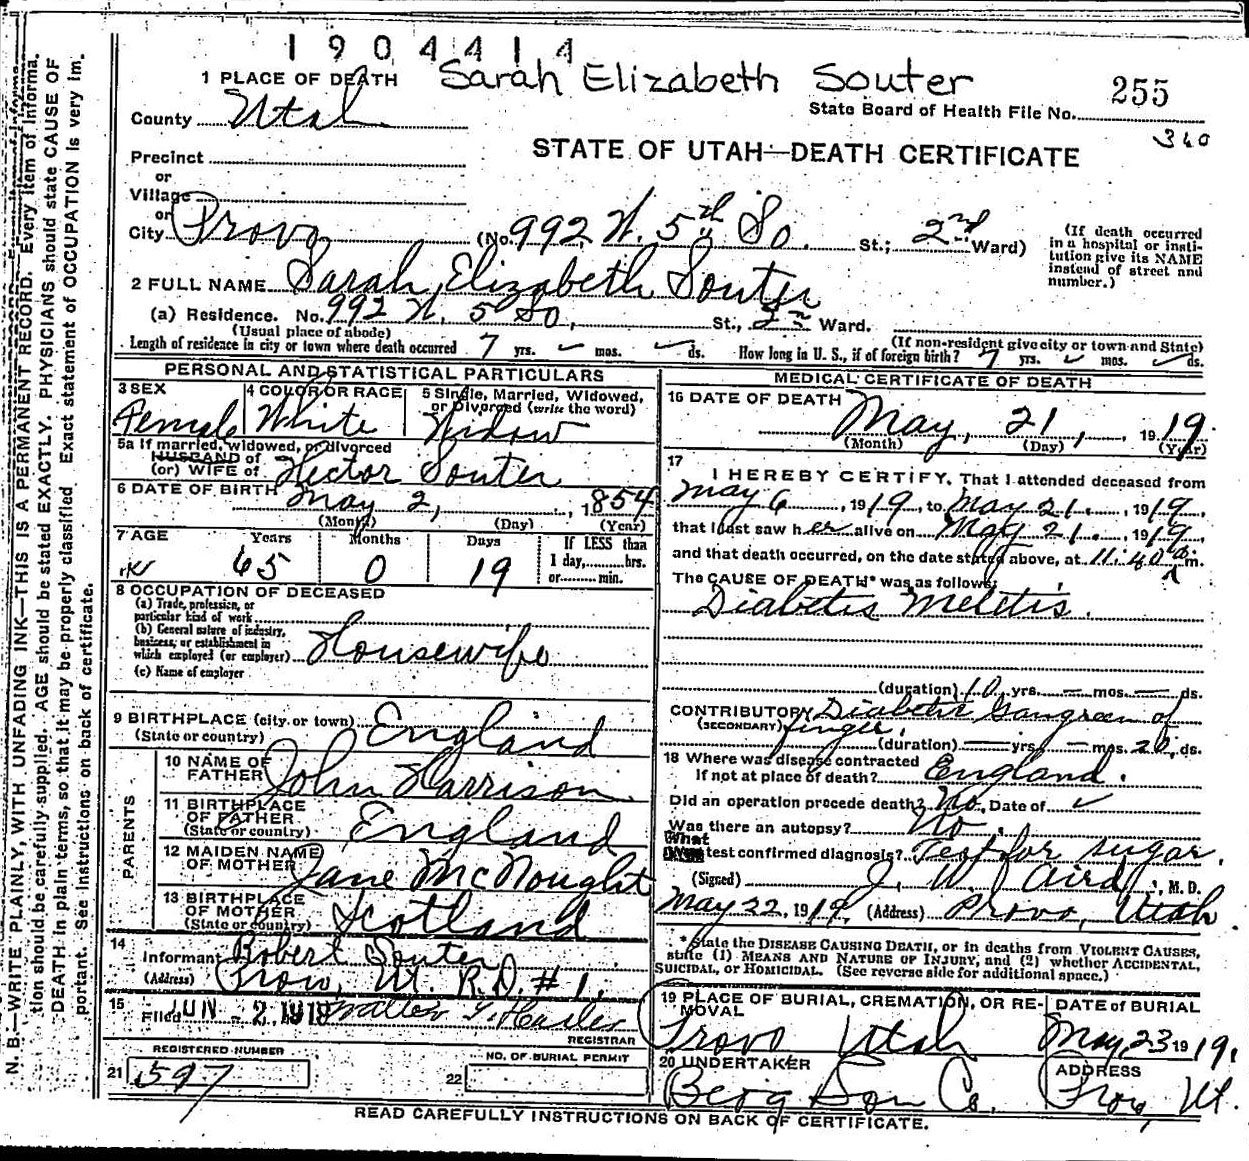 1904414
1 PLACE OF DEATH Sarah Elizabeth Souter 255
State Board of Health File No.
County Utah
340
STATE OF UTAH—DEATH CERTIFICATE
Precinct
or
Village
or
City Provo (No. 992 W. 5th So. St.; 2nd Ward) (If death occurred in a hospital or institution give its NAME instead of street and number.)
2 FULL NAME Sarah Elizabeth Souter
(a) Residence. No. 992 W. 5 So, St., 2nd Ward.
(Usual place of abode) (If non-resident give city or town and State)
Length of residence in city or town where death occurred 7 yrs. mos. ds. How long in U. S., if of foreign birth? 7 yrs. mos. ds.
PERSONAL AND STATISTICAL PARTICULARS
3 SEX Female
4 COLOR OR RACE White
5 Single, Married, Widowed, or Divorced (write the word) Widow
5a If married, widowed, or divorced
HUSBAND of
(or) WIFE of Hector Souter
6 DATE OF BIRTH May 2, 1854
(Month) (Day) (Year)
7 AGE Years 65 Months 0 Days 19 If LESS than 1 day, hrs. or min.
8 OCCUPATION OF DECEASED
(a) Trade, profession, or particular kind of work
(b) General nature of industry, business, or establishment in which employed (or employer) Housewife
(c) Name of employer
9 BIRTHPLACE (city or town) England
(State or country)
PARENTS
10 NAME OF FATHER John Harrison
11 BIRTHPLACE OF FATHER (State or country) England
12 MAIDEN NAME OF MOTHER Jane McNought
13 BIRTHPLACE OF MOTHER (State or country) Scotland
14 Informant Robert Souter
(Address) Provo, Ut. R.D. #1.
15 Filed JUN - 2 1919
REGISTRAR
REGISTERED NUMBER
21 597
NO. OF BURIAL PERMIT
22
MEDICAL CERTIFICATE OF DEATH
16 DATE OF DEATH May, 21, 1919.
(Month) (Day) (Year)
17 I HEREBY CERTIFY, That I attended deceased from
May 6, 1919, to May 21, 1919,
that I last saw her alive on May 21, 1919,
and that death occurred, on the date stated above, at 11:40 m.
The CAUSE OF DEATH* was as follows:
Diabetis Meletis.
(duration) 10 yrs. — mos. — ds.
CONTRIBUTORY Diabetic Gangreen of
(SECONDARY) finger.
(duration) — yrs. — mos. 20 ds.
18 Where was disease contracted
If not at place of death? England.
Did an operation precede death? No. Date of
Was there an autopsy? No.
What test confirmed diagnosis? Test for sugar.
(Signed) J. W. Aird, M. D.
May 22, 1919. (Address) Provo, Utah
* State the DISEASE CAUSING DEATH, or in deaths from VIOLENT CAUSES, state (1) MEANS AND NATURE OF INJURY, and (2) whether ACCIDENTAL, SUICIDAL, OR HOMICIDAL. (See reverse side for additional space.)
19 PLACE OF BURIAL, CREMATION, OR REMOVAL Provo Utah
DATE of BURIAL May, 23 1919.
20 UNDERTAKER Berg Son Co.
ADDRESS Provo, Ut.
READ CAREFULLY INSTRUCTIONS ON BACK OF CERTIFICATE.
N. B.—WRITE PLAINLY, WITH UNFADING INK—THIS IS A PERMANENT RECORD. Every item of information should be carefully supplied. AGE should be stated EXACTLY. PHYSICIANS should state CAUSE OF DEATH in plain terms, so that it may be properly classified. Exact statement of OCCUPATION is very important. See instructions on back of certificate.